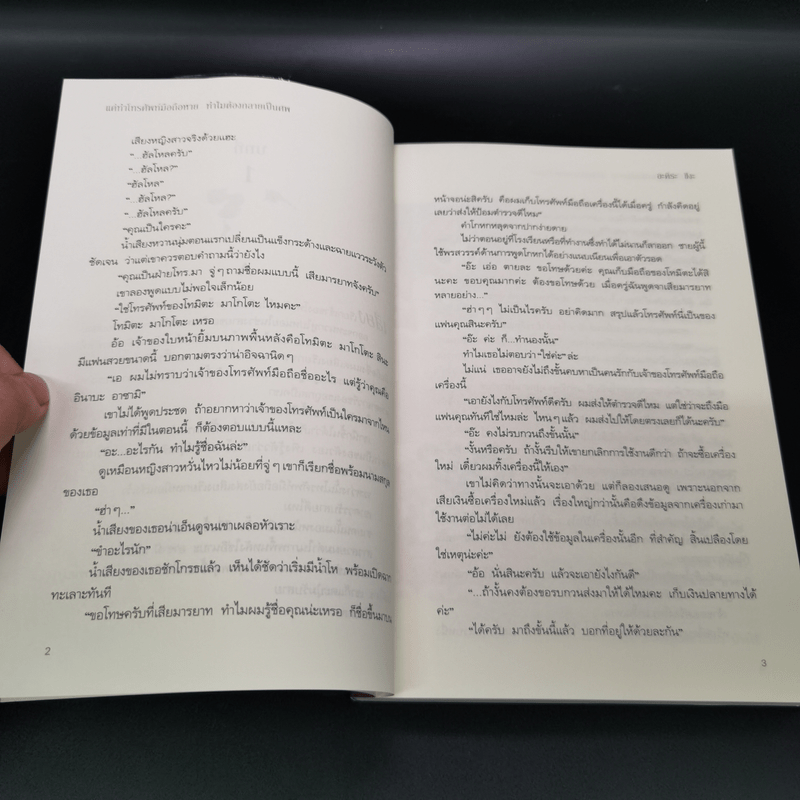 แค่ทำโทรศัพท์มือถือหาย ทำไมต้องกลายเป็นศพ
เสียงหญิงสาวจริงด้วยแฮะ
"...ฮัลโหลครับ"
"...ฮัลโหล?"
"ฮัลโหล"
"...ฮัลโหล?"
"...ฮัลโหลครับ"
"คุณเป็นใครคะ"
น้ำเสียงหวานนุ่มตอนแรกเปลี่ยนเป็นแข็งกระด้างและฉายแววระวังตัว
ชัดเจน ว่าแต่เขาควรตอบคำถามนี้ว่ายังไง
"คุณเป็นฝ่ายโทร.มา จู่ๆ ถามชื่อผมแบบนี้ เสียมารยาทจังครับ"
เขาลองพูดแบบไม่พอใจเล็กน้อย
"ใช่โทรศัพท์ของโทมิตะ มาโกโตะ ไหมคะ"
โทมิตะ มาโกโตะ เหรอ
อ้อ เจ้าของใบหน้ายิ้มบนภาพพื้นหลังคือโทมิตะ มาโกโตะ สินะ
มีแฟนสวยขนาดนี้ บอกตามตรงว่าน่าอิจฉานิดๆ
"เอ ผมไม่ทราบว่าเจ้าของโทรศัพท์มือถือชื่ออะไร แต่รู้ว่าคุณคือ
อินาบะ อาซามิ"
เขาไม่ได้พูดประชด ถ้าอยากหาว่าเจ้าของโทรศัพท์เป็นใครมาจากไหน
ด้วยข้อมูลเท่าที่มีในตอนนี้ ก็ต้องตอบแบบนี้แหละ
"อะ...อะไรกัน ทำไมรู้ชื่อฉันล่ะ"
ดูเหมือนหญิงสาวหวั่นไหวไม่น้อยที่จู่ๆ เขาก็เรียกชื่อพร้อมนามสกุล
ของเธอ
"ฮ่าๆ..."
น้ำเสียงของเธอน่าเอ็นดูจนเขาเผลอหัวเราะ
"ขำอะไรนัก"
น้ำเสียงของเธอชักโกรธแล้ว เห็นได้ชัดว่าเริ่มมีน้ำโห พร้อมเปิดฉาก
ทะเลาะทันที
"ขอโทษครับที่เสียมารยาท ทำไมผมรู้ชื่อคุณน่ะเหรอ ก็ชื่อขึ้นมาบน
2
อะคิระ ชิงะ
หน้าจอน่ะสิครับ คือผมเก็บโทรศัพท์มือถือเครื่องนี้ได้เมื่อครู่ กำลังคิดอยู่
เลยว่าส่งให้ป้อมตำรวจดีไหม"
คำโกหกหลุดจากปากง่ายดาย
ไม่ว่าตอนอยู่ที่โรงเรียนหรือที่ทำงานซึ่งทำได้ไม่นานก็ลาออก ชายผู้นี้
ใช้พรสวรรค์ด้านการพูดโกหกได้อย่างแนบเนียนเพื่อเอาตัวรอด
"อ๊ะ เอ่อ ตายละ ขอโทษด้วยค่ะ คุณเก็บมือถือของโทมิตะได้สิ
นะคะ ขอบคุณมากค่ะ ต้องขอโทษด้วย เมื่อครู่ฉันพูดจาเสียมารยาท
หลายอย่าง..."
"ฮ่าๆๆ ไม่เป็นไรครับ อย่าคิดมาก สรุปแล้วโทรศัพท์นี่เป็นของ
แฟนคุณสินะครับ"
"อ๊ะ ค่ะ ก็...ทำนองนั้น"
ทำไมเธอไม่ตอบว่า "ใช่ค่ะ" ล่ะ
ไม่แน่ เธออาจยังไม่ถึงขั้นคบหาเป็นคนรักกับเจ้าของโทรศัพท์มือถือ
เครื่องนี้
"เอายังไงกับโทรศัพท์ดีครับ ผมส่งให้ตำรวจดีไหม แต่ใช่ว่าจะถึงมือ
แฟนคุณทันทีใช่ไหมล่ะ ไหนๆ แล้ว ผมส่งไปให้โดยตรงเลยก็ได้นะครับ"
"อุ๊ย คงไม่รบกวนถึงขั้นนั้น"
"งั้นหรือครับ ถ้างั้นรีบให้เขายกเลิกการใช้งานดีกว่า ถ้าจะซื้อเครื่อง
ใหม่ เดี๋ยวผมทิ้งเครื่องนี้ให้เอง"
เขาไม่คิดว่าทางนั้นจะเอาด้วย แต่ก็ลองเสนอดู เพราะนอกจาก
เสียเงินซื้อเครื่องใหม่แล้ว เรื่องใหญ่กว่านั้นคือดึงข้อมูลจากเครื่องเก่ามา
ใช้งานต่อไม่ได้เลย
"ไม่ค่ะไม่ ยังต้องใช้ข้อมูลในเครื่องนั้นอีก ที่สำคัญ สิ้นเปลืองโดย
ใช่เหตุน่ะค่ะ"
"อ้อ นั่นสินะครับ แล้วจะเอายังไงกันดี"
"...ถ้างั้นคงต้องขอรบกวนส่งมาให้ได้ไหมคะ เก็บเงินปลายทางได้
ค่ะ"
"ได้ครับ มาถึงขั้นนี้แล้ว บอกที่อยู่ให้ด้วยละกัน"
3